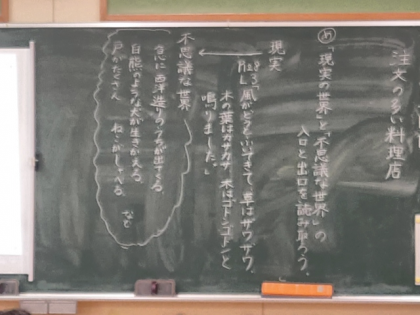 注文の多い料理店
め「現実の世界」と「不思議な世界」の
入口と出口を読み取ろう。
現実
「風がどうとふいてきて、草はザワザワ、
木の葉はカサカサ、木はゴトンゴトンと
鳴りました。」
不思議な世界
急に西洋造りのうちが出てくる。
白熊のような犬が生きかえる。
戸がたくさん ねこがしゃべる など